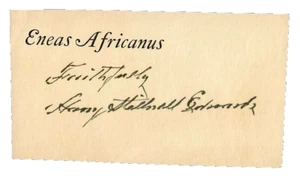 Eneas Africanus
Faithfully
Harry Stillwell Edwards